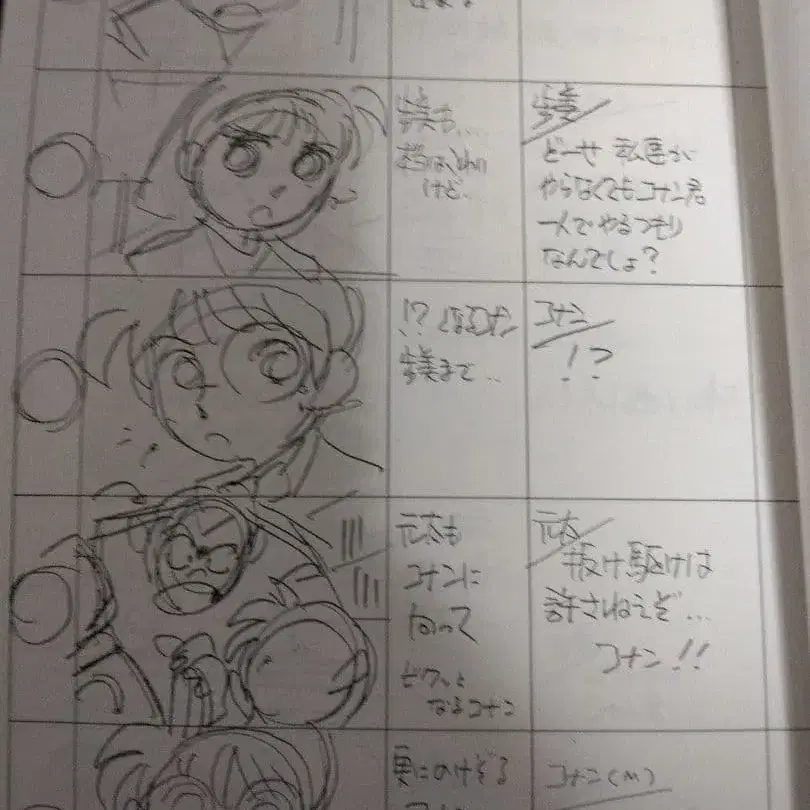 歩美も...
本当はこわい
けど..
歩美
どーせ 私達が
やらなくてもコナン君
一人でやるつもり
なんでしょ?
!? となるコナン
歩美まで..
コナン
!?
元太も
コナンに
向って
ビクッと
なるコナン
元太
抜け駆けは
許さねえぞ...
コナン!!
更にのけぞる
コナン(M)